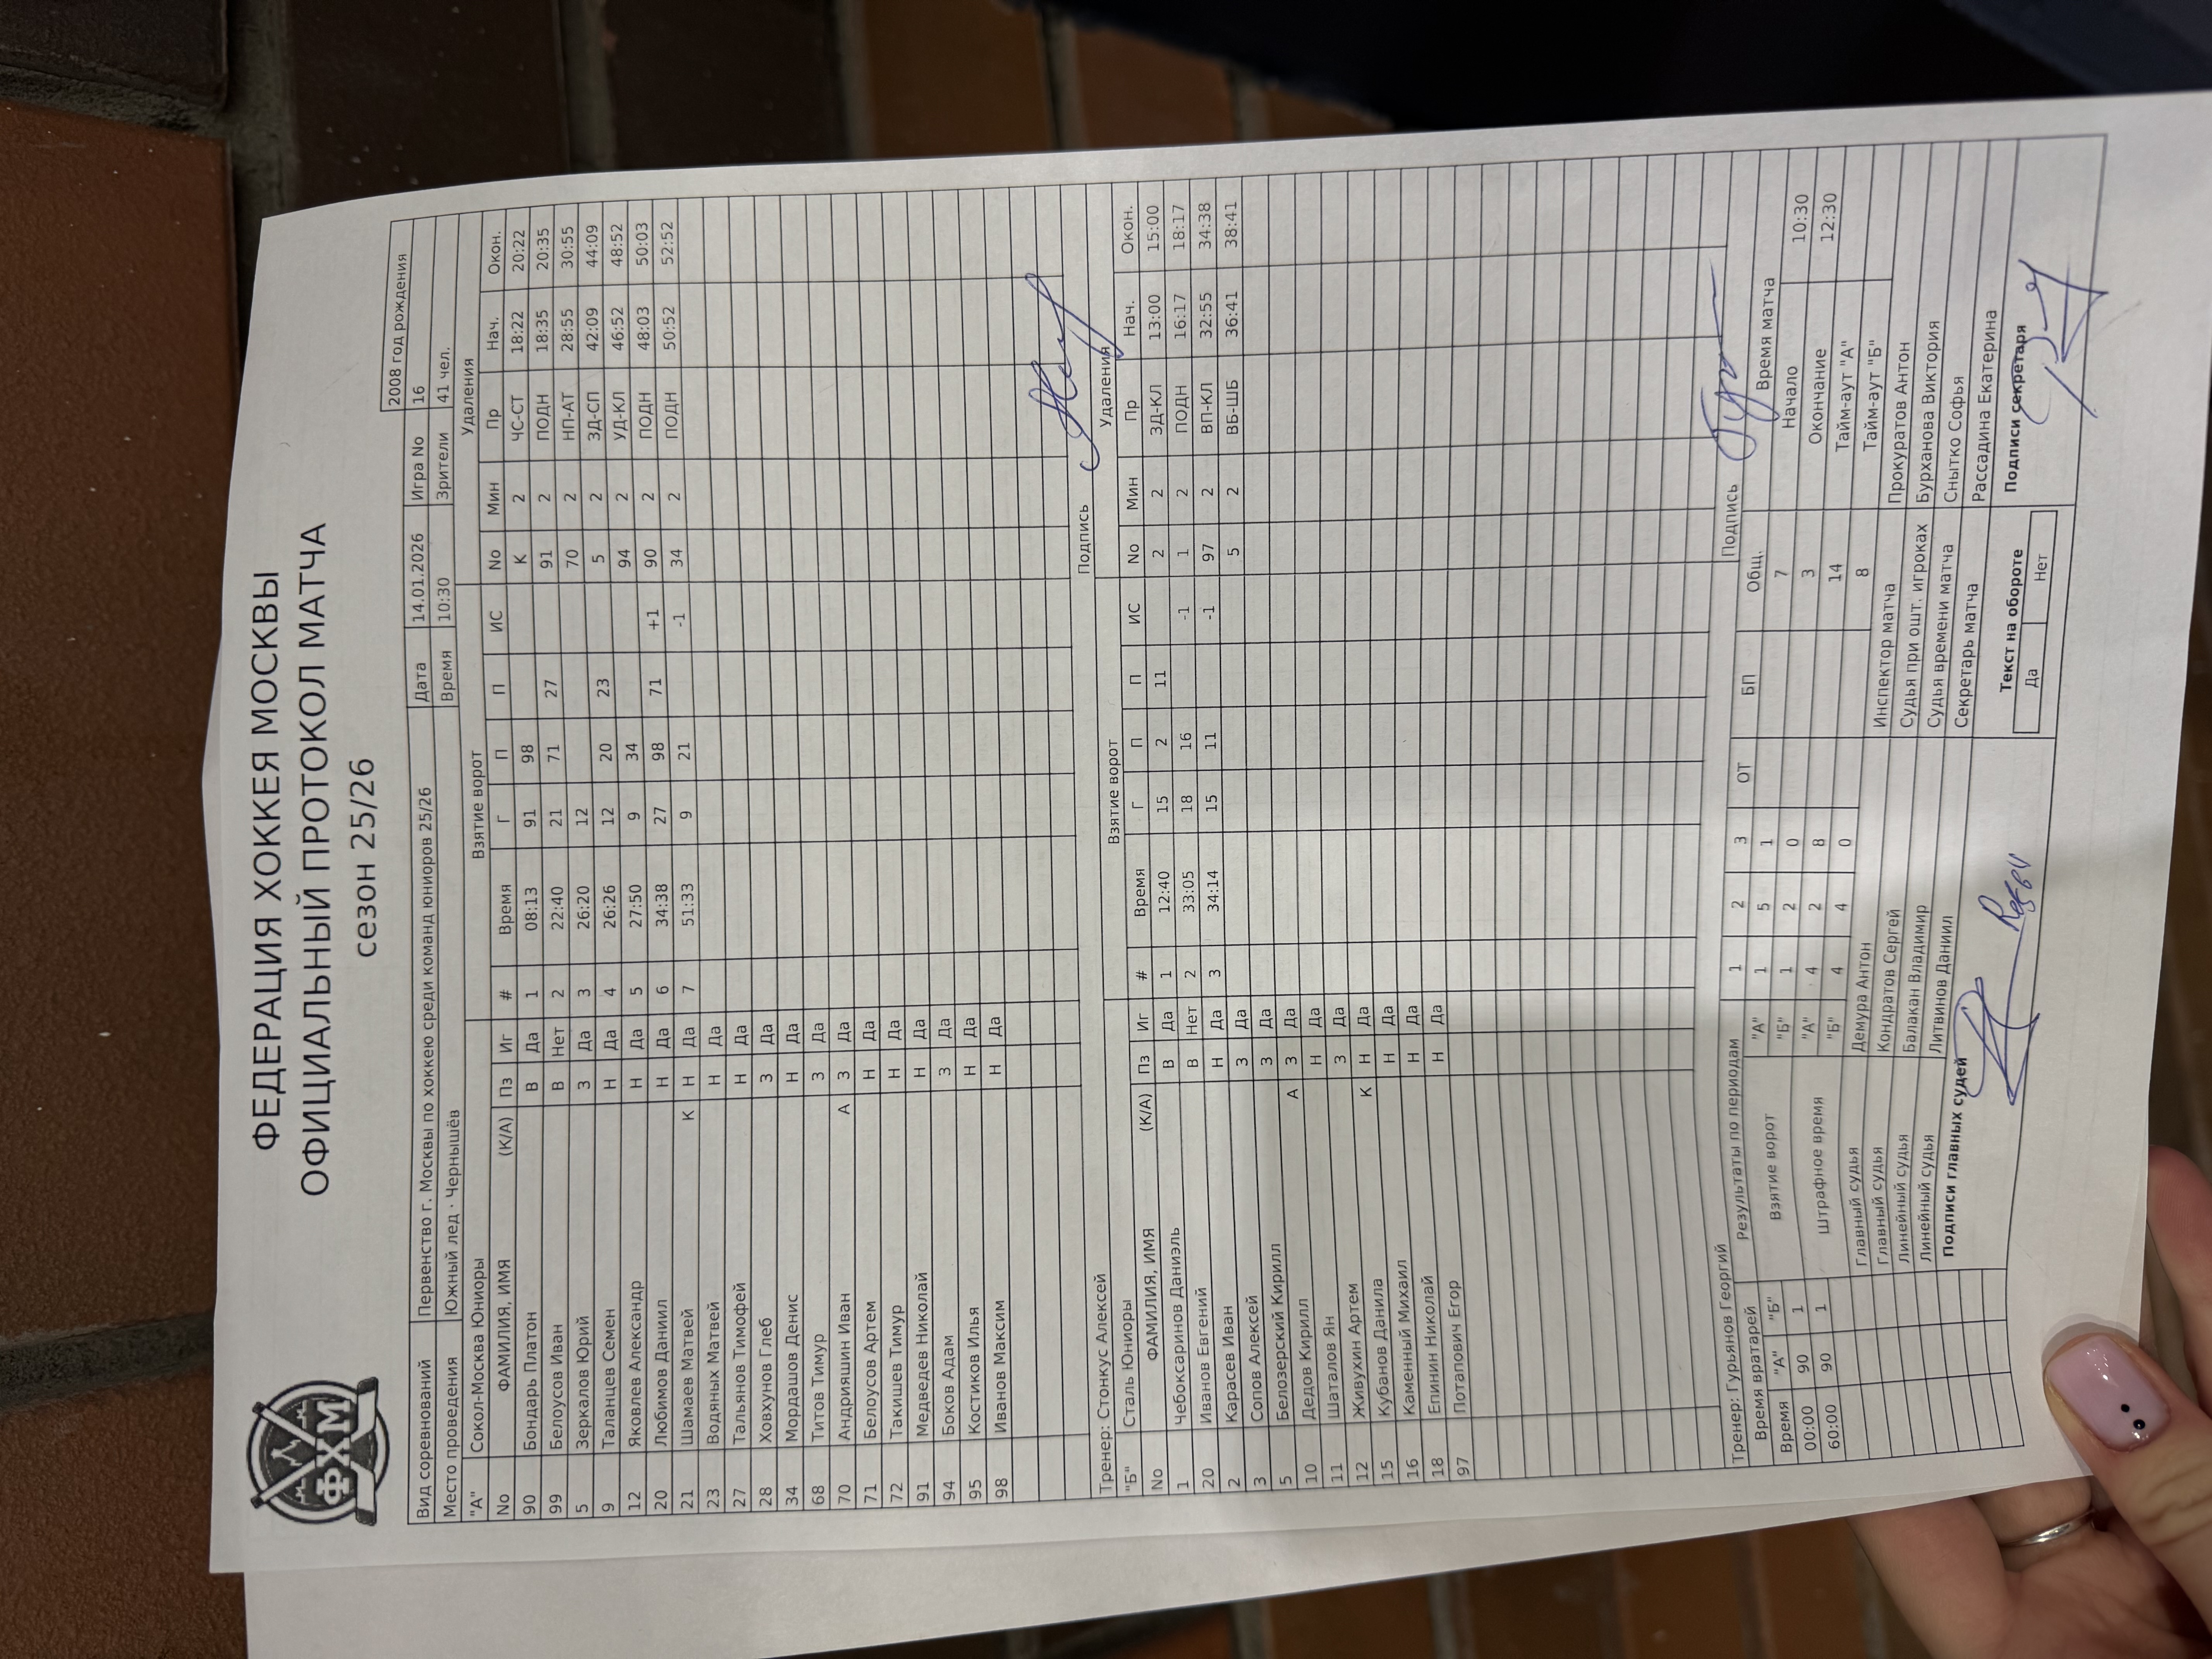 ФХМ
ФЕДЕРАЦИЯ ХОККЕЯ МОСКВЫ
ОФИЦИАЛЬНЫЙ ПРОТОКОЛ МАТЧА
сезон 25/26
2008 год рождения
Вид соревнований Первенство г. Москвы по хоккею среди команд юниоров 25/26 Дата 14.01.2026 Игра No 16
Место проведения Южный лед · Чернышёв Время 10:30 Зрители 41 чел.
"А" Сокол-Москва Юниоры Взятие ворот Удаления
No ФАМИЛИЯ, ИМЯ (К/А) Пз Иг # Время Г П П ИС No Мин Пр Нач. Окон.
90 Бондарь Платон В Да 1 08:13 91 98 К 2 ЧС-СТ 18:22 20:22
99 Белоусов Иван В Нет 2 22:40 21 71 27 91 2 ПОДН 18:35 20:35
5 Зеркалов Юрий З Да 3 26:20 12 70 2 НП-АТ 28:55 30:55
9 Таланцев Семен Н Да 4 26:26 12 20 23 5 2 ЗД-СП 42:09 44:09
12 Яковлев Александр Н Да 5 27:50 9 34 94 2 УД-КЛ 46:52 48:52
20 Любимов Даниил Н Да 6 34:38 27 98 71 +1 90 2 ПОДН 48:03 50:03
21 Шамаев Матвей К Н Да 7 51:33 9 21 -1 34 2 ПОДН 50:52 52:52
23 Водяных Матвей Н Да
27 Тальянов Тимофей Н Да
28 Ховхунов Глеб З Да
34 Мордашов Денис Н Да
68 Титов Тимур З Да
70 Андрияшин Иван А З Да
71 Белоусов Артем Н Да
72 Такишев Тимур Н Да
91 Медведев Николай Н Да
94 Боков Адам З Да
95 Костиков Илья Н Да
98 Иванов Максим Н Да
Тренер: Стонкус Алексей Подпись
"Б" Сталь Юниоры Взятие ворот Удаления
No ФАМИЛИЯ, ИМЯ (К/А) Пз Иг # Время Г П П ИС No Мин Пр Нач. Окон.
1 Чебоксаринов Даниэль В Да 1 12:40 15 2 11 2 2 ЗД-КЛ 13:00 15:00
20 Иванов Евгений В Нет 2 33:05 18 16 -1 1 2 ПОДН 16:17 18:17
2 Карасев Иван Н Да 3 34:14 15 11 -1 97 2 ВП-КЛ 32:55 34:38
3 Сопов Алексей З Да 5 2 ВБ-ШБ 36:41 38:41
5 Белозерский Кирилл А З Да
10 Дедов Кирилл Н Да
11 Шаталов Ян З Да
12 Живухин Артем К Н Да
15 Кубанов Данила Н Да
16 Каменный Михаил Н Да
18 Епинин Николай Н Да
97 Потапович Егор Н Да
Тренер: Гурьянов Георгий Подпись
Время вратарей Результаты по периодам 1 2 3 ОТ БП Общ. Время матча
Время "А" "Б" Взятие ворот "А" 1 5 1 7 Начало 10:30
00:00 90 1 "Б" 1 2 0 3 Окончание 12:30
60:00 90 1 Штрафное время "А" 4 2 8 14 Тайм-аут "А"
"Б" 4 4 0 8 Тайм-аут "Б"
Главный судья Демура Антон Инспектор матча Прокуратов Антон
Главный судья Кондратов Сергей Судья при ошт. игроках Бурханова Виктория
Линейный судья Балакан Владимир Судья времени матча Снытко Софья
Линейный судья Литвинов Даниил Секретарь матча Рассадина Екатерина
Подписи главных судей Текст на обороте Подписи секретаря
Да Нет